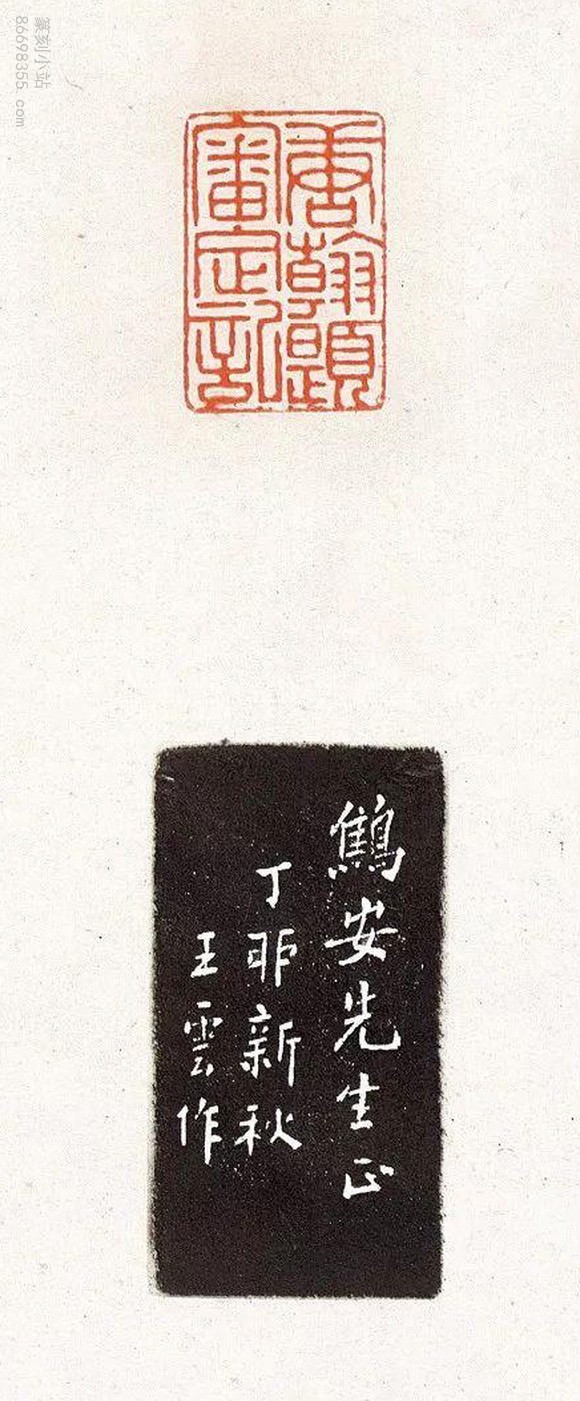 篆刻小站
86698355.com
唐翰題
審定記
鷦安先生正
丁卯新秋
王雲作